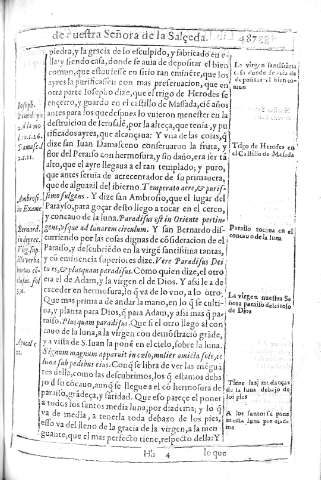 de nuestra Señora de la Salceda. 487
piedra, y la gracia de lo esculpido, y fabricado en e-
lla y siendo casa, donde se auia de depositar el bien
comun, que estuuiesse en sitio tan eminẽte, que los
ayres la purificassen con mas preseruacion, que en
otra parte Iosepho dize, que el trigo de Herodes se
encerro, y guardo en el castillo de Massada, cie años
antes para los que despues lo vuieron menester en la
destruicion de Ierusalẽ, por la alteça, que tenia, y pu
rificados ayres, que alcançaua: Y vna de las cosas, q̃
dize san Juan Damasceno conseruaron la fruta, y
flor del Parayso con hermosura, y sin daño, era ser tã
alto, que el ayre llegaua a el tan templado, y puro,
que antes seruia de acrecentador de su primauera,
que de alguazil del ibierno. Temperato aere, & puris-
simo fulgens. Y dize san Ambrosio, que el lugar del
Parayso, para goçar desto llego a tocar en el cerco,
y concauo de la luna. Paradisus est in Oriente pertin-
gens, vsque ad lunarem circulum. Y san Bernardo dis-
curriendo por las cosas dignas de cõsideracion de el
Paraiso, y descubriẽdo en la virgẽ santissima tantas,
y cõ eminencia superiores dize. Vere Paradisus Dei
tu es, & plusquam paradisus. Como quien dize, el otro
era el de Adam, y la virgen el de Dios. Y assi le a de
exceder en hermosura, lo q̃ va de lo vno, a lo otro.
Que mas prima a de andar la mano, en lo q̃ se culti-
ua, y planta para Dios, q̃ para Adam, y assi mas q̃ pa-
raiso. Plusquam paradisus. Que si el otro llego al con
cauo de la luna, a la virgen con demostraciõ grãde,
y a villa de S. Juan la ponẽ en el cielo, sobre la luna.
Signum magnum apparuit in celo, mulier amicta sole, et
luna sub pedibus eius. Conq̃ se libra de ver las mẽgua
tes della, como las descubrimos, los q̃ estamos deba
jo d su cõcauo, aunq̃ se llegue a el cõ hermosura de
paraiso, grãdeça, y satidad. Que eso pareçe el poner
a todos los santos media luna, por diadema; y lo q̃
va de media, a tenerla toda debajo de los pies,
esso va del lleno de la gracia de la virgen, a la men
guante, que el mas perfecto tiene, respecto della: Y
Hh 4 lo que
La virgen santissima
deposita el bien co-
mun
Trigo de Herodes en
el Castillo de Masada
Paraiso toca en el
concauo de la luna
La virgen nuestra Se
ñora paraiso del cielo
de Dios
Tiene las mudanças
de la luna debajo de
los pies
A los santos se pone
media luna por diade
ma
Ioseph.
Damasc.
Ambros.
in Exame.
Bernard.